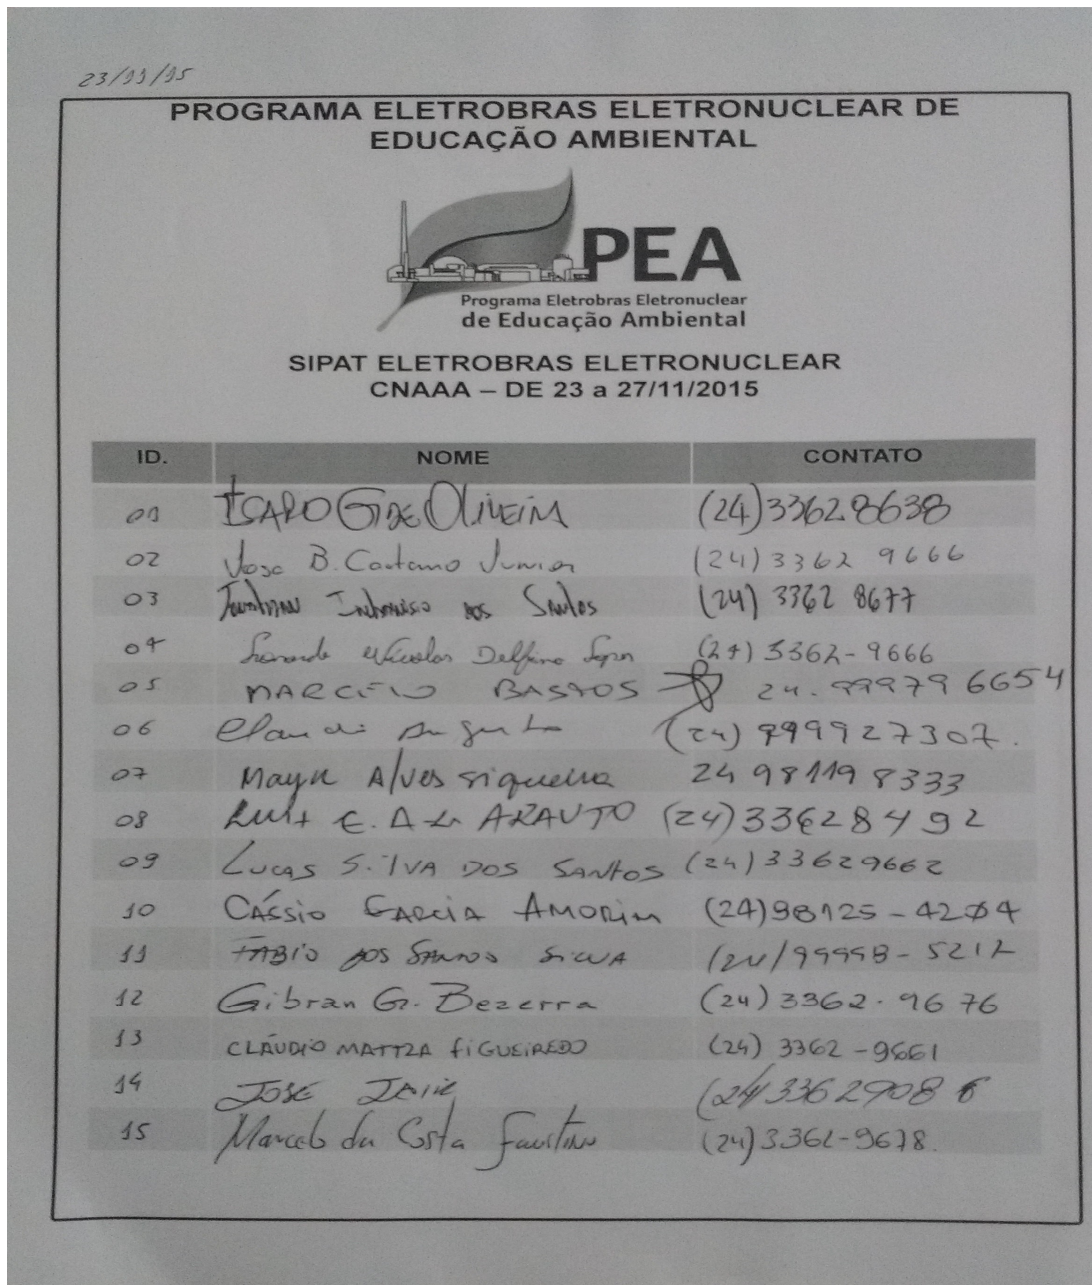 23/11/15
PROGRAMA ELETROBRAS ELETRONUCLEAR DE
EDUCAÇÃO AMBIENTAL
PEA
Programa Eletrobras Eletronuclear
de Educação Ambiental
SIPAT ELETROBRAS ELETRONUCLEAR
CNAAA – DE 23 a 27/11/2015
ID. NOME CONTATO
01 OLIVEIRA (24)33628638
02 Jose B. Caetano Junior (24)3362 9666
03 dos Santos (24) 3362 8677
04 Delfino (24) 3362-9666
05 BASTOS 24.99979 6654
06 Augusto (24) 999927307.
07 Alves siqueira 24 98119 8333
08 Luis E. A. (24)33628492
09 LUCAS SILVA DOS SANTOS (24)33629662
10 CÁSSIO GARCIA AMORIM (24)98125-4204
11 FABIO DOS SANTOS SILVA (24)99998-5212
12 Gibran G. Bezerra (24)3362.9676
13 CLÁUDIO FIGUEIREDO (24) 3362-9661
14 JOSE (24)33629086
15 Marcelo da Costa Faustino (24)3362-9678.